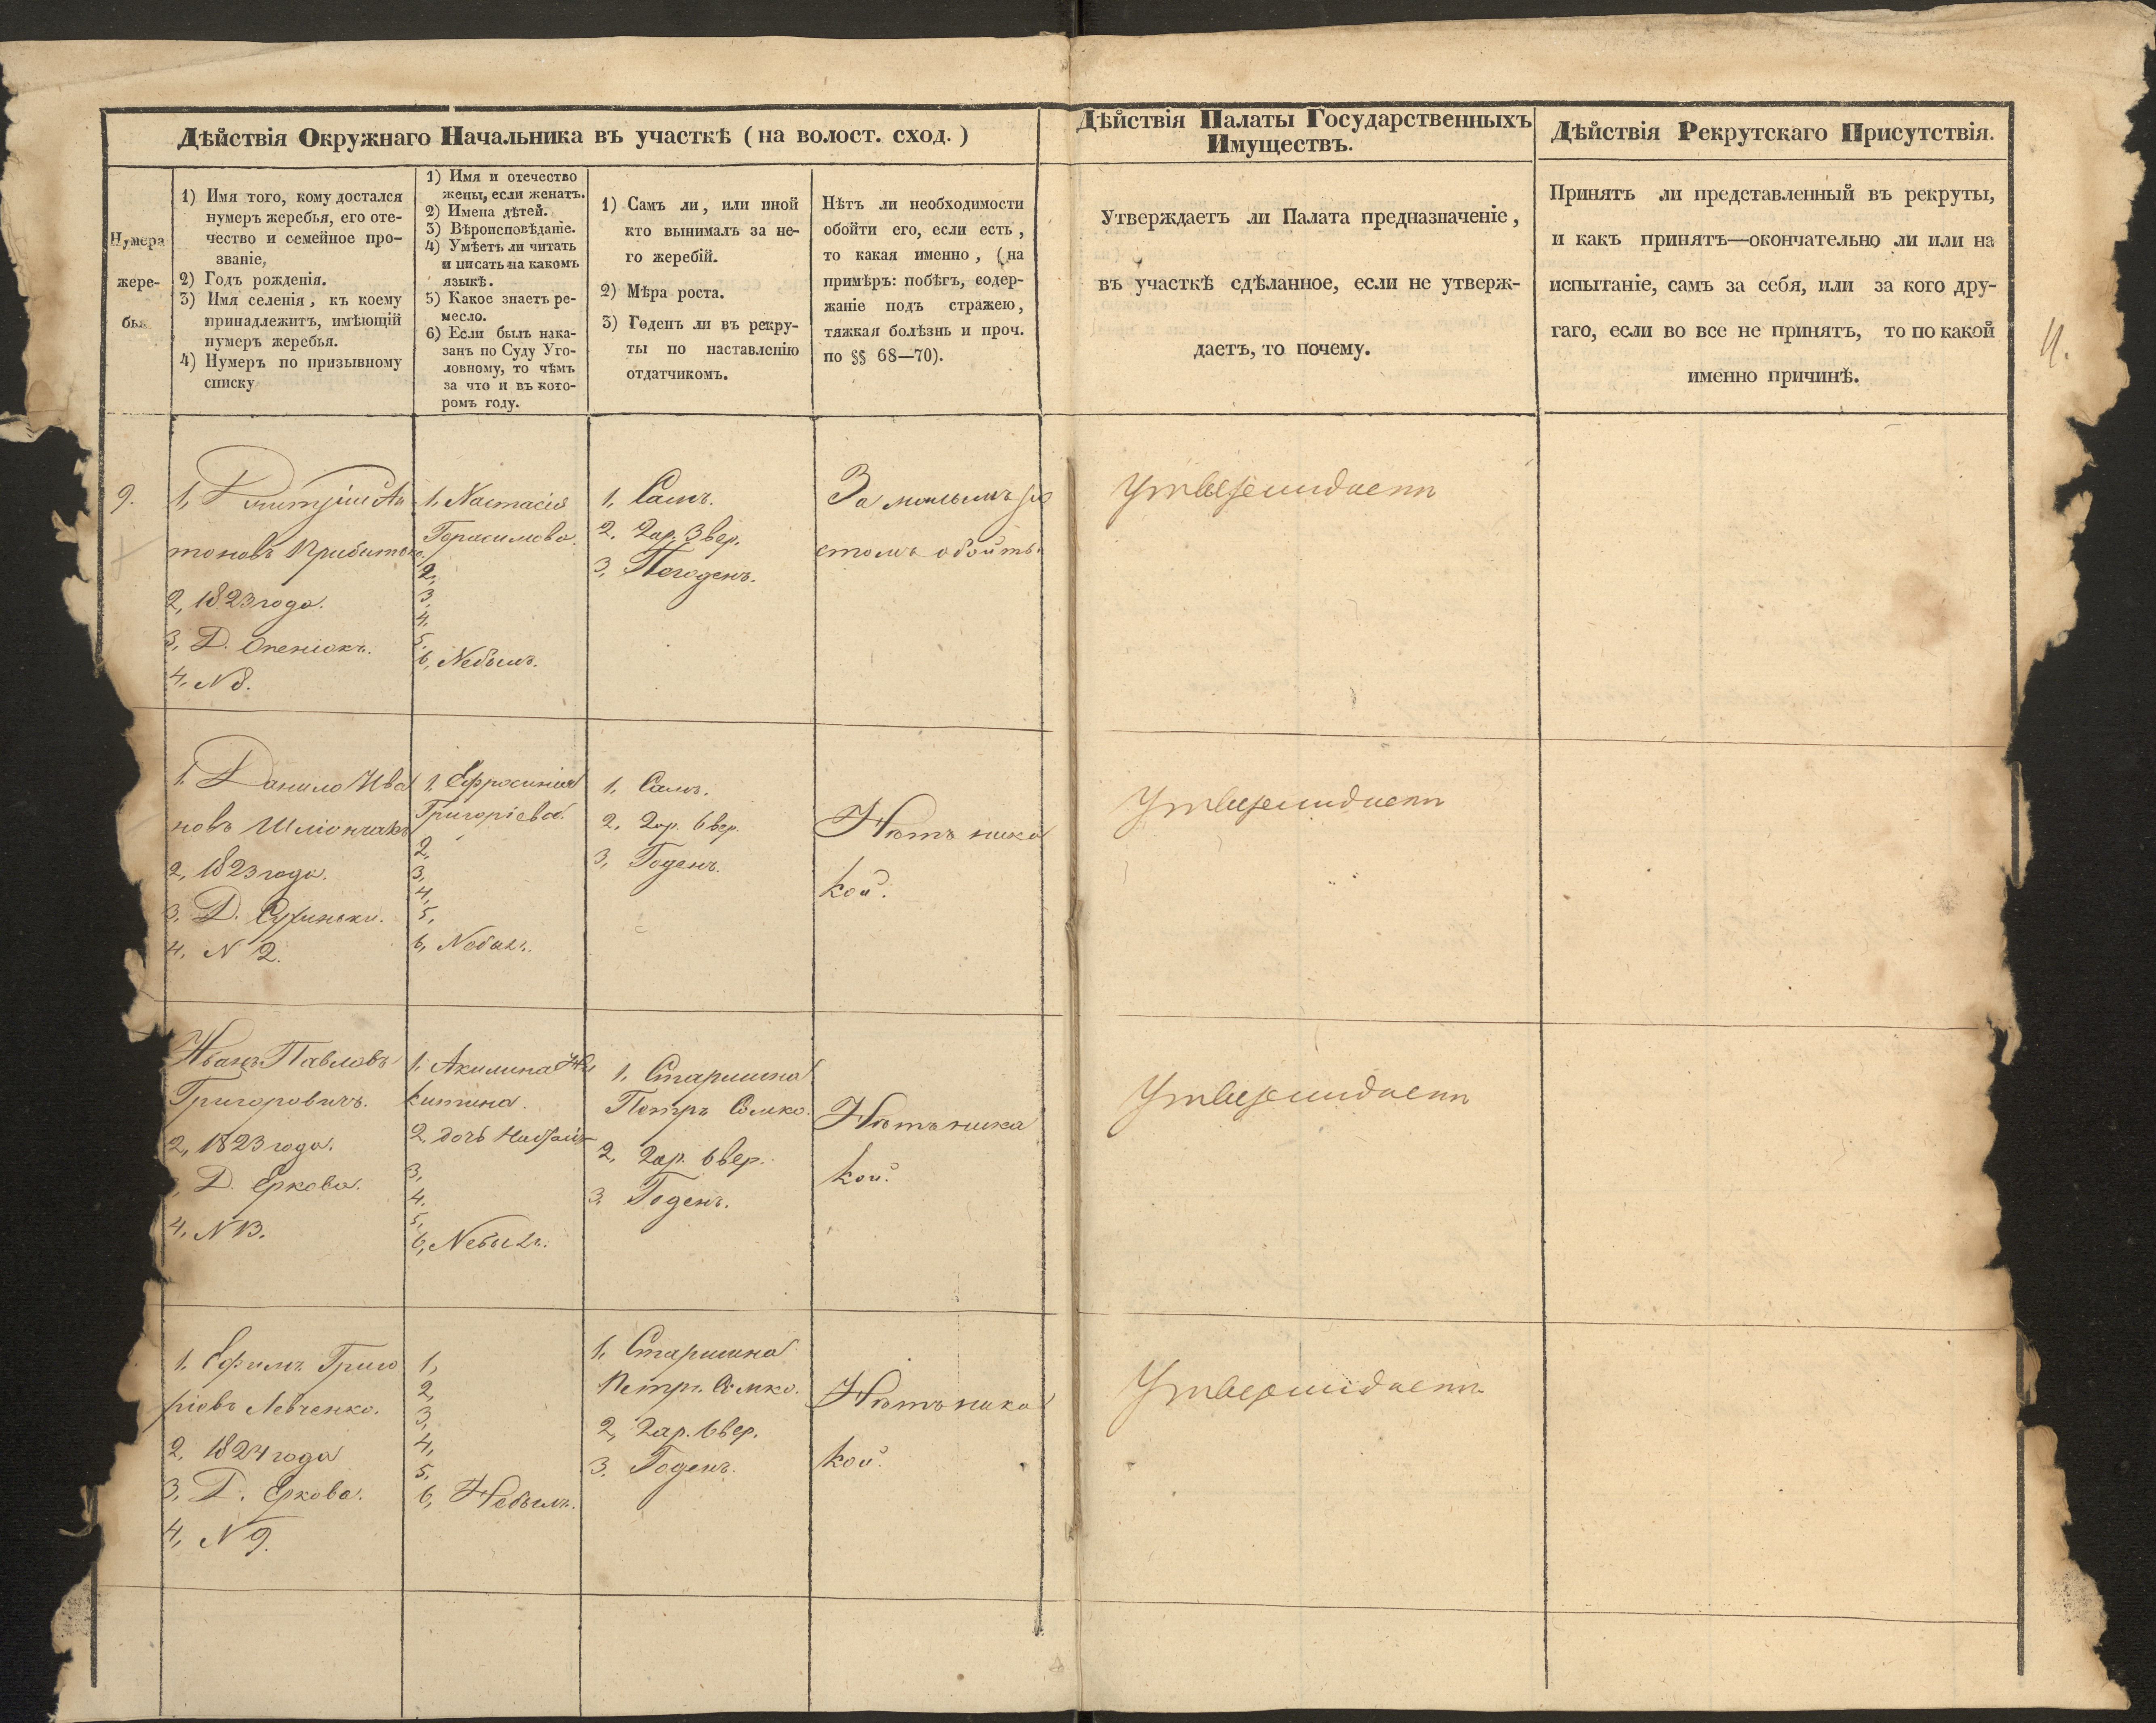 Дѣйствія Окружнаго Начальника въ участкѣ (на волост. сход.)
Дѣйствія Палаты Государственныхъ
Имуществъ.
Дѣйствія Рекрутскаго Присутствія.
Нумера
жере-
бья
1) Имя того, кому достался
нумеръ жеребья, его оте-
чество и семейное про-
званіе,
2) Годъ рожденія.
3) Имя селенія, къ коему
принадлежитъ, имѣющій
нумеръ жеребья.
4) Нумеръ по призывному
списку
1) Имя и отечество
жены, если женатъ.
2) Имена дѣтей.
3) Вѣроисповѣданіе.
4) Умѣетъ ли читать
и писать на какомъ
языкѣ.
5) Какое знаетъ ре-
месло.
6) Если былъ нака-
занъ по Суду Уго-
ловному, то чѣмъ
за что и въ кото-
ромъ году.
1) Самъ ли, или иной
кто вынималъ за не-
го жеребій.
2) Мѣра роста.
3) Годенъ ли въ рекру-
ты по наставленію
отдатчикомъ.
Нѣтъ ли необходимости
обойти его, если есть,
то какая именно, (на
примѣръ: побѣгъ, содер-
жаніе подъ стражею,
тяжкая болѣзнь и проч.
по §§ 68—70).
Утверждаетъ ли Палата предназначеніе,
въ участкѣ сдѣланное, если не утверж-
даетъ, то почему.
Принятъ ли представленный въ рекруты,
и какъ принятъ—окончательно ли или на
испытаніе, самъ за себя, или за кого дру-
гаго, если во все не принятъ, то по какой
именно причинѣ.
9.
1, Дмитрій Ан
тоновъ
2, 1823 года.
3, Д. Опенюкъ.
4, N 8.
1, Настасія
Герасимова.
2,
3,
4,
5,
6, Небылъ.
1, Самъ.
2, 2 ар. 3 вер.
3, Негоденъ.
За малымъ ро
стомъ обойтъ
Утверждаетъ
1, Данило Ива
новъ
2, 1823 года.
3, Д.
4, N 2.
1, Ефросинія
Григоріева.
2,
3,
4,
5,
6, Небылъ.
1, Самъ.
2, 2 ар. 6 вер.
3, Годенъ.
Нѣтъ ника
кой.
Утверждаетъ
Иванъ Павловъ
Григоровичъ.
2, 1823 года.
Д. Еркова.
4, N 13.
1, Акилина Ни
китина.
2, дочь
3,
4,
5,
6, Небылъ.
1, Старшина
Петръ Сомко.
2, 2 ар. 6 вер.
3, Годенъ.
Нѣтъ ника
кой.
Утверждаетъ
1, Ефимъ Григо
ріевъ Левченко.
2, 1824 года
3, Д. Еркова.
4, N 9.
1,
2,
3,
4,
5,
6, Небылъ.
1, Старшина
Петръ Сомко.
2, 2 ар. 6 вер.
3, Годенъ.
Нѣтъ ника
кой.
Утверждаетъ